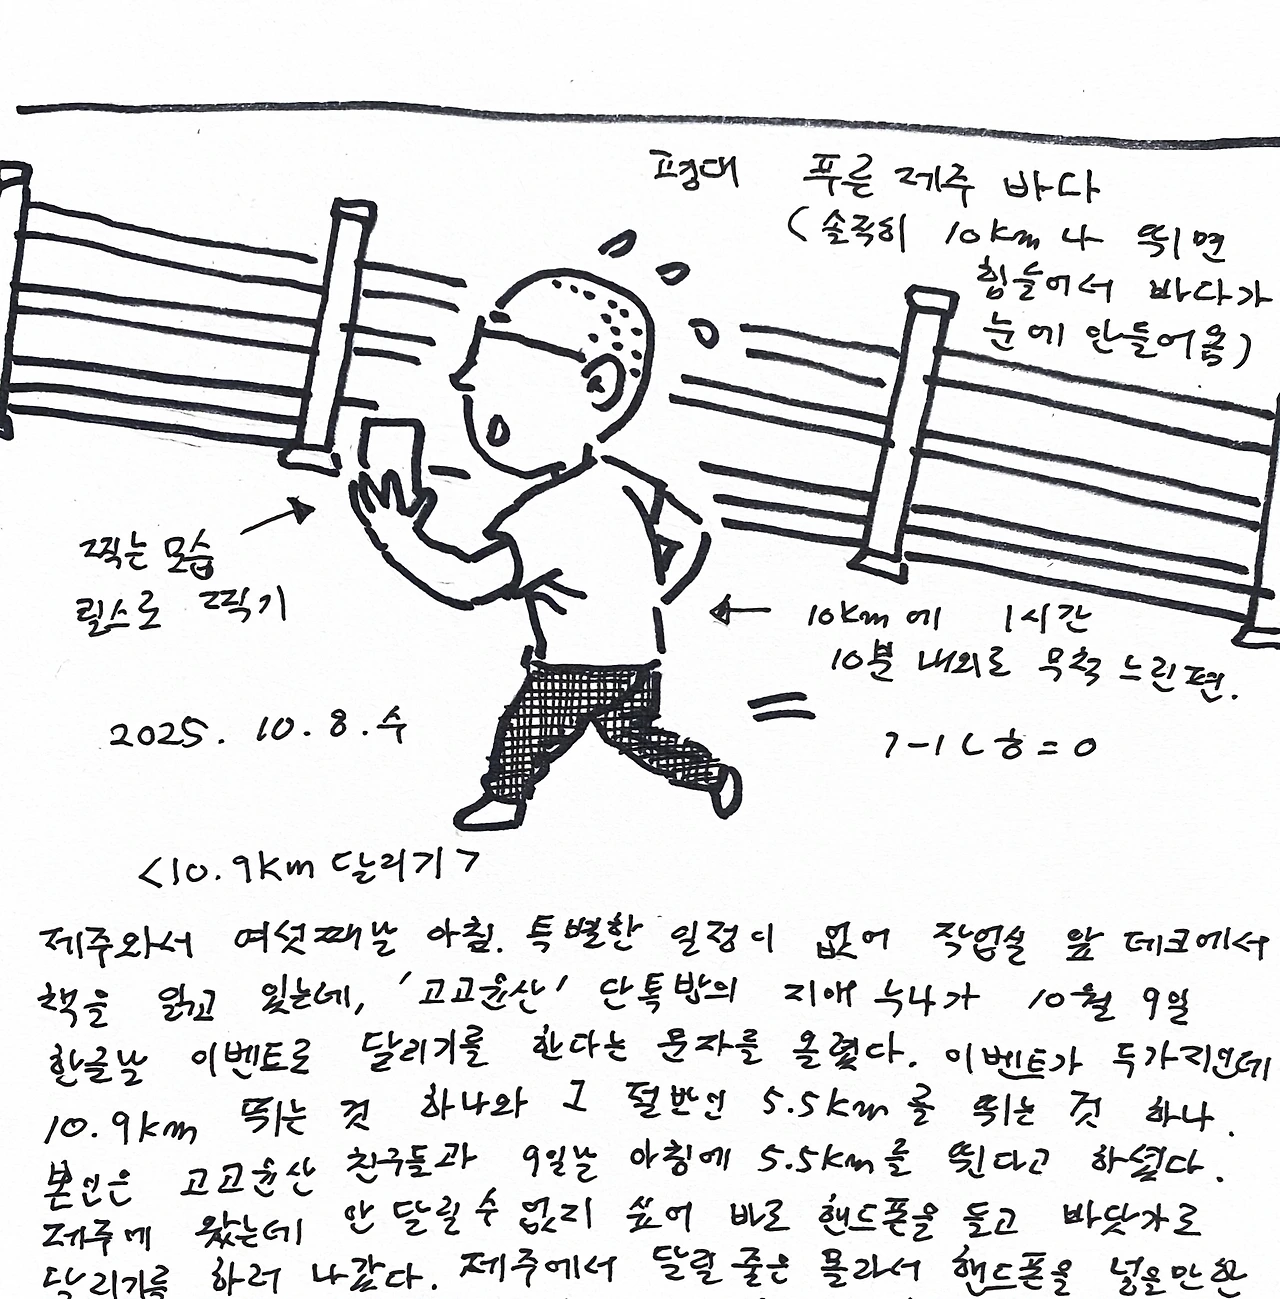 평대 푸른 제주 바다
(솔직히 10km나 뛰면
힘들어서 바다가
눈에 안들어옴)
찍는 모습
릴스로 찍기
10km에 1시간
10분 내외로 무척 느린편.
2025. 10. 8. 수
<10.9km 달리기>
제주와서 여섯째날 아침. 특별한 일정이 없어 작업실 앞 데크에서
책을 읽고 있는데, '고고윤산' 단톡방의 지애 누나가 10월 9일
한글날 이벤트로 달리기를 한다는 문자를 올렸다. 이벤트가 두가지인데
10.9km 뛰는 것 하나와 그 절반인 5.5km를 뛰는 것 하나.
본인은 고고윤산 친구들과 9일날 아침에 5.5km를 뛴다고 하셨다.
제주에 왔는데 안 달릴 수 없지 싶어 바로 핸드폰을 들고 바닷가로
달리기를 하러 나갔다. 제주에서 달릴 줄은 몰라서 핸드폰을 넣을만한